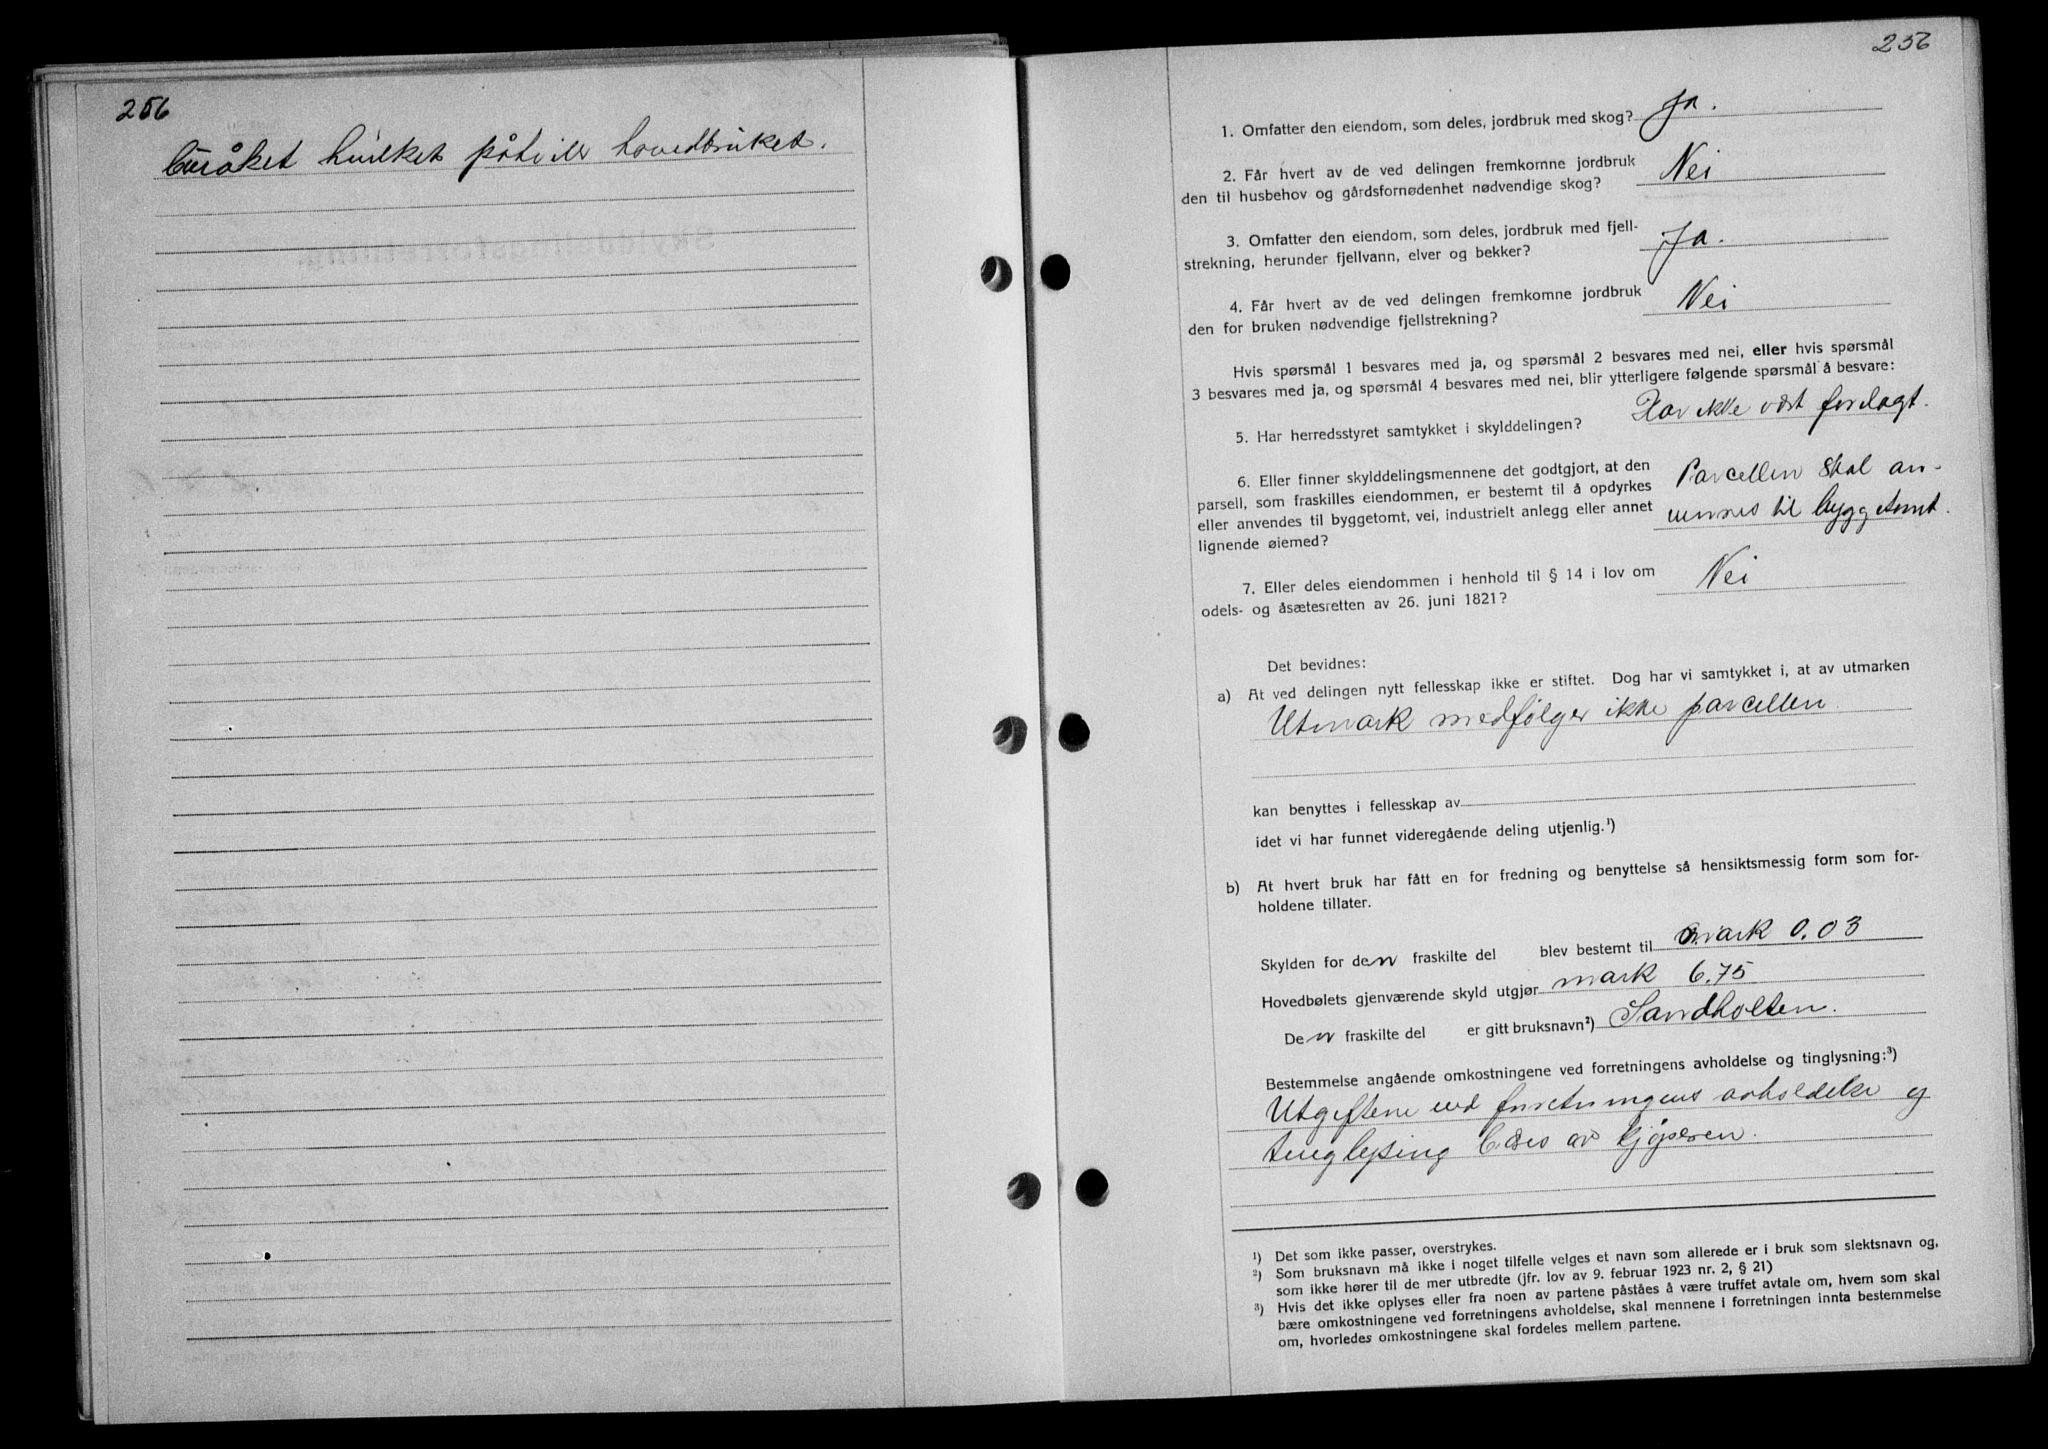 256
bruket hvilket påhviler hovedbruket.
256
1. Omfatter den eiendom, som deles, jordbruk med skog? Ja.
2. Får hvert av de ved delingen fremkomne jordbruk
den til husbehov og gårdsfornødenhet nødvendige skog? Nei
3. Omfatter den eiendom, som deles, jordbruk med fjell-
strekning, herunder fjellvann, elver og bekker? Ja.
4. Får hvert av de ved delingen fremkomne jordbruk
den for bruken nødvendige fjellstrekning? Nei
Hvis spørsmål 1 besvares med ja, og spørsmål 2 besvares med nei, eller hvis spørsmål
3 besvares med ja, og spørsmål 4 besvares med nei, blir ytterligere følgende spørsmål å besvare:
5. Har herredsstyret samtykket i skylddelingen? Har ikke vært forelagt.
6. Eller finner skylddelingsmennene det godtgjort, at den
parsell, som fraskilles eiendommen, er bestemt til å opdyrkes
eller anvendes til byggetomt, vei, industrielt anlegg eller annet
lignende øiemed?
Parcellen skal an-
vennes til byggetomt.
7. Eller deles eiendommen i henhold til § 14 i lov om
odels- og åsætesretten av 26. juni 1821? Nei
Det bevidnes:
a) At ved delingen nytt fellesskap ikke er stiftet. Dog har vi samtykket i, at av utmarken
Utmark medfølger ikke parcellen.
kan benyttes i fellesskap av
idet vi har funnet videregående deling utjenlig.¹)
b) At hvert bruk har fått en for fredning og benyttelse så hensiktsmessig form som for-
holdene tillater.
Skylden for den fraskilte del blev bestemt til mark 0.03
Hovedbølets gjenværende skyld utgjør mark 6,75
Den fraskilte del er gitt bruksnavn²) Sandholten.
Bestemmelse angående omkostningene ved forretningens avholdelse og tinglysning:³)
Utgiftene ved forretningens avholdelse og
tinglysing bæres av kjøperen.
¹) Det som ikke passer, overstrykes.
²) Som bruksnavn må ikke i noget tilfelle velges et navn som allerede er i bruk som slektsnavn og,
som ikke hører til de mer utbredte (jfr. lov av 9. februar 1923 nr. 2, § 21)
³) Hvis det ikke oplyses eller fra noen av partene påståes å være truffet avtale om, hvem som skal
bære omkostningene ved forretningens avholdelse, skal mennene i forretningen innta bestemmelse
om, hvorledes omkostningene skal fordeles mellem partene.